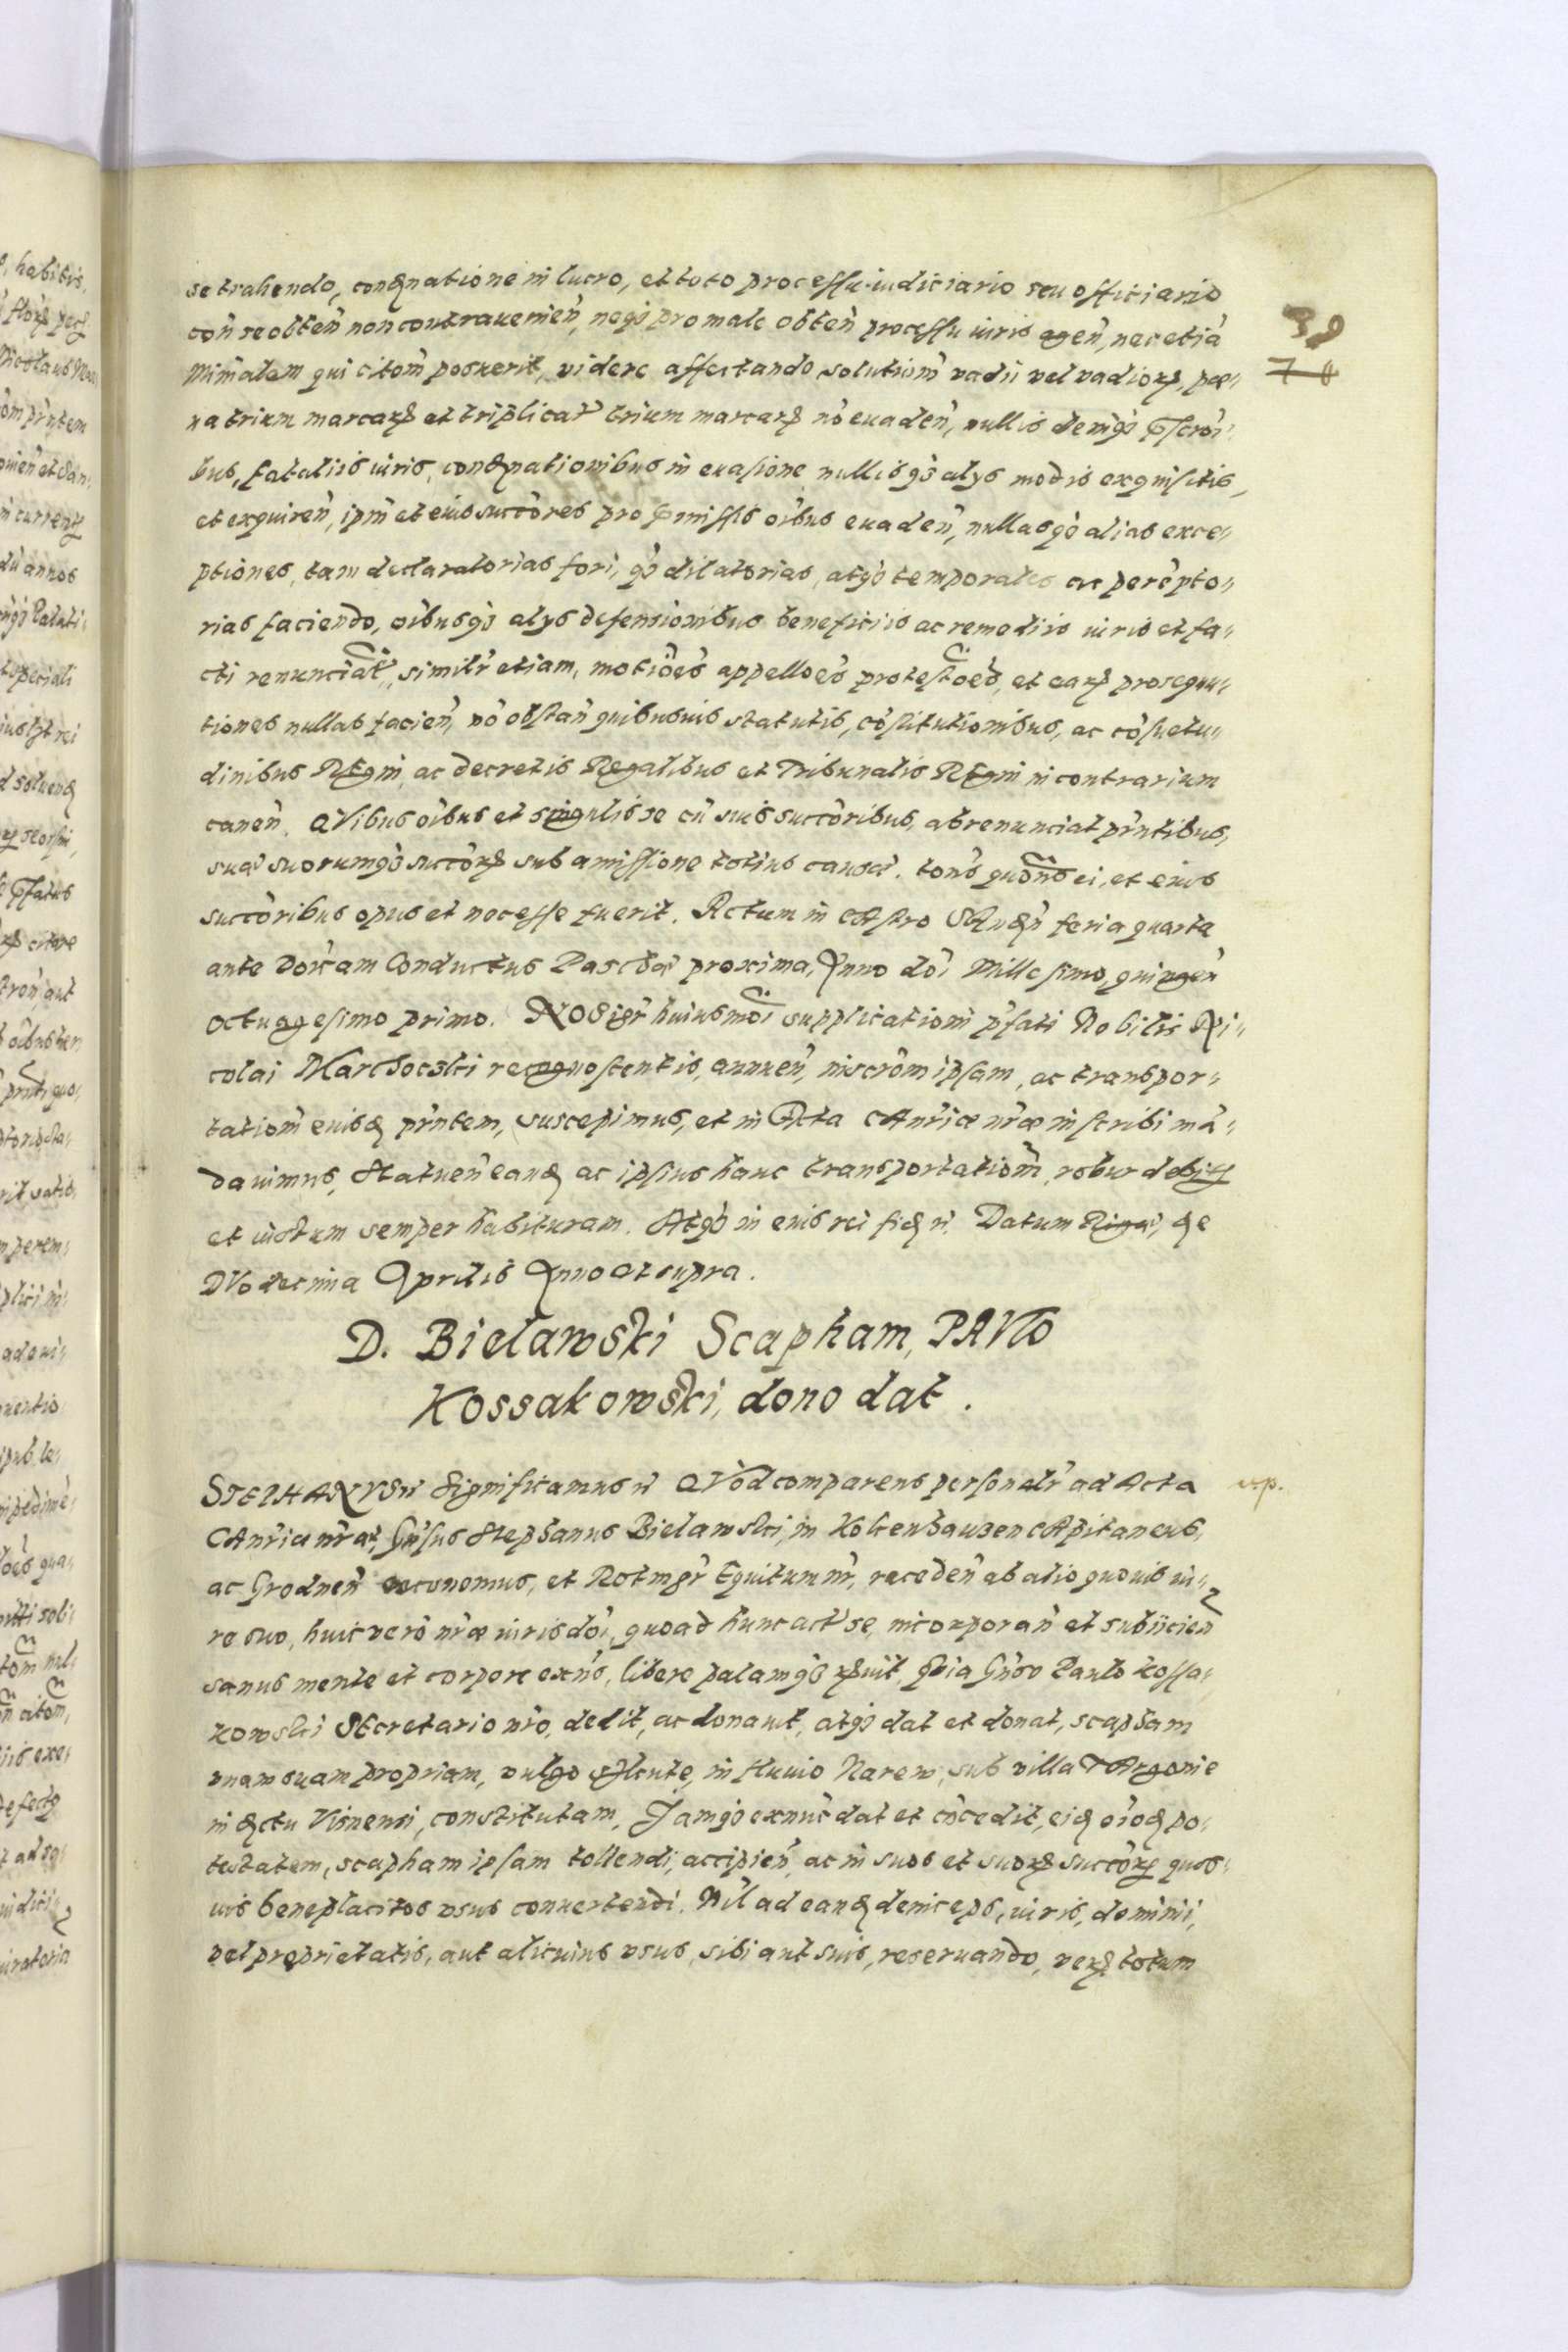 se trahendo, condnatione in lucro, et toto processu iudiciario seu officiario
con̄ se obten̄ non contravenien̄, neqȝ pro male obten̄ processu iuris agen̄, nec etiā
Min̄alem qui citom̄ posuerit, videre affectando, solutiom̄ vadii vel vadiorꝝ, pæ-
na trium marcarꝝ et triplicat̄ trium marcarꝝ nō evaden̄, nullis deniqȝ
bus, fataliis iuris, condnationibus in evasione nullisqȝ alys modis exquisitis,
et exquiren̄, ipm̄ et eius succōres pro p̄missis oībus evaden̄, nullasqȝ alias exce-
ptiones, tam declaratorias fori, qȝ dilatorias, atqȝ temporales ac perēpto-
rias faciendo, oībusqȝ alys defensionibus beneficiis ac remediis iuris et fa-
cti renunciat̄, similr̄ etiam, motiōes appelloēs protestoēs, et earꝝ prosequu-
tiones nullas facien̄, nō obstan̄ quibusvis statutis, cōstitutionibus, ac cōsuetu-
dinibus REgni, ac decretis Regalibus et Tribunalis REgni in contrarium
canen̄. QVibus oībus et singulis se cū suis succōribus, abrenunciat pr̄ntibus,
sua suorumqȝ succōrꝝ sub amissione totius causæ. tōns quōns ei, et eius
succōribus opus et necesse fuerit. Actum in cAstro feria quarta
ante Dōīcam Conductus Paschæ proxima, Anno dōi Millesimo, quingen̄
Octuagesimo primo. NOS igr̄ huiusmōi supplicationi p̄fati Nobilis Ni-
colai recognoscentis, annuen̄, inscrōm ipsam, ac transpor-
tatiom̄ eiusd pr̄ntem, suscepimus, et in Acta cAnr̄iæ nr̄æ inscribi mā-
davimus, Statuen̄ eand ac ipsius hanc transportatiom̄, robur debitꝝ
et iustum semper habituram. Atqȝ in eius rei fid n̄. Datum Rigæ, de
DVodecima Aprilis Anno ut supra.
D. Bielawski Scapham, PAVlo
Kossakowski, dono dat.
STEPHANVS n̄ Significamus n̄ QVōd comparens personalr̄ ad Acta
cAnr̄ia nr̄æ, Gn̄sus Stephanus Bielawski, in Kokenhauzen cApitaneus,
ac Grodnen̄ œconomus, et Rotmgr̄ Equitum nr̄, receden̄ ab alio quovis iu-
re suo, huic verō nr̄æ iurisdōi, quoad hunc act̄ se, incorporan̄ et subiicien̄
sanus mente et corpore exn̄s, libere palamqȝ rꝝvit, Quia Gn̄so Paulo Kossa-
kowski SEcretario nr̄o, dedit, ac donavit, atqȝ dat et donat, scapham
vnam suam propriam, vulgo Skute, in fluvio Narew, sub villa TArgonie
in dctu Visnensi, constitutam, Jamqȝ exnūc dat et cōcedit, eid oīod po-
testatem, scapham ipsam tollendi, accipien̄, ac in suos et suorꝝ succōrꝝ quos-
vis beneplacitos vsus convertendi. Nīl ad eand deinceps, iuris, dominii,
vel proprietatis, aut alicuius vsus, sibi aut suis, reservando, verꝝ totum
38
vp.